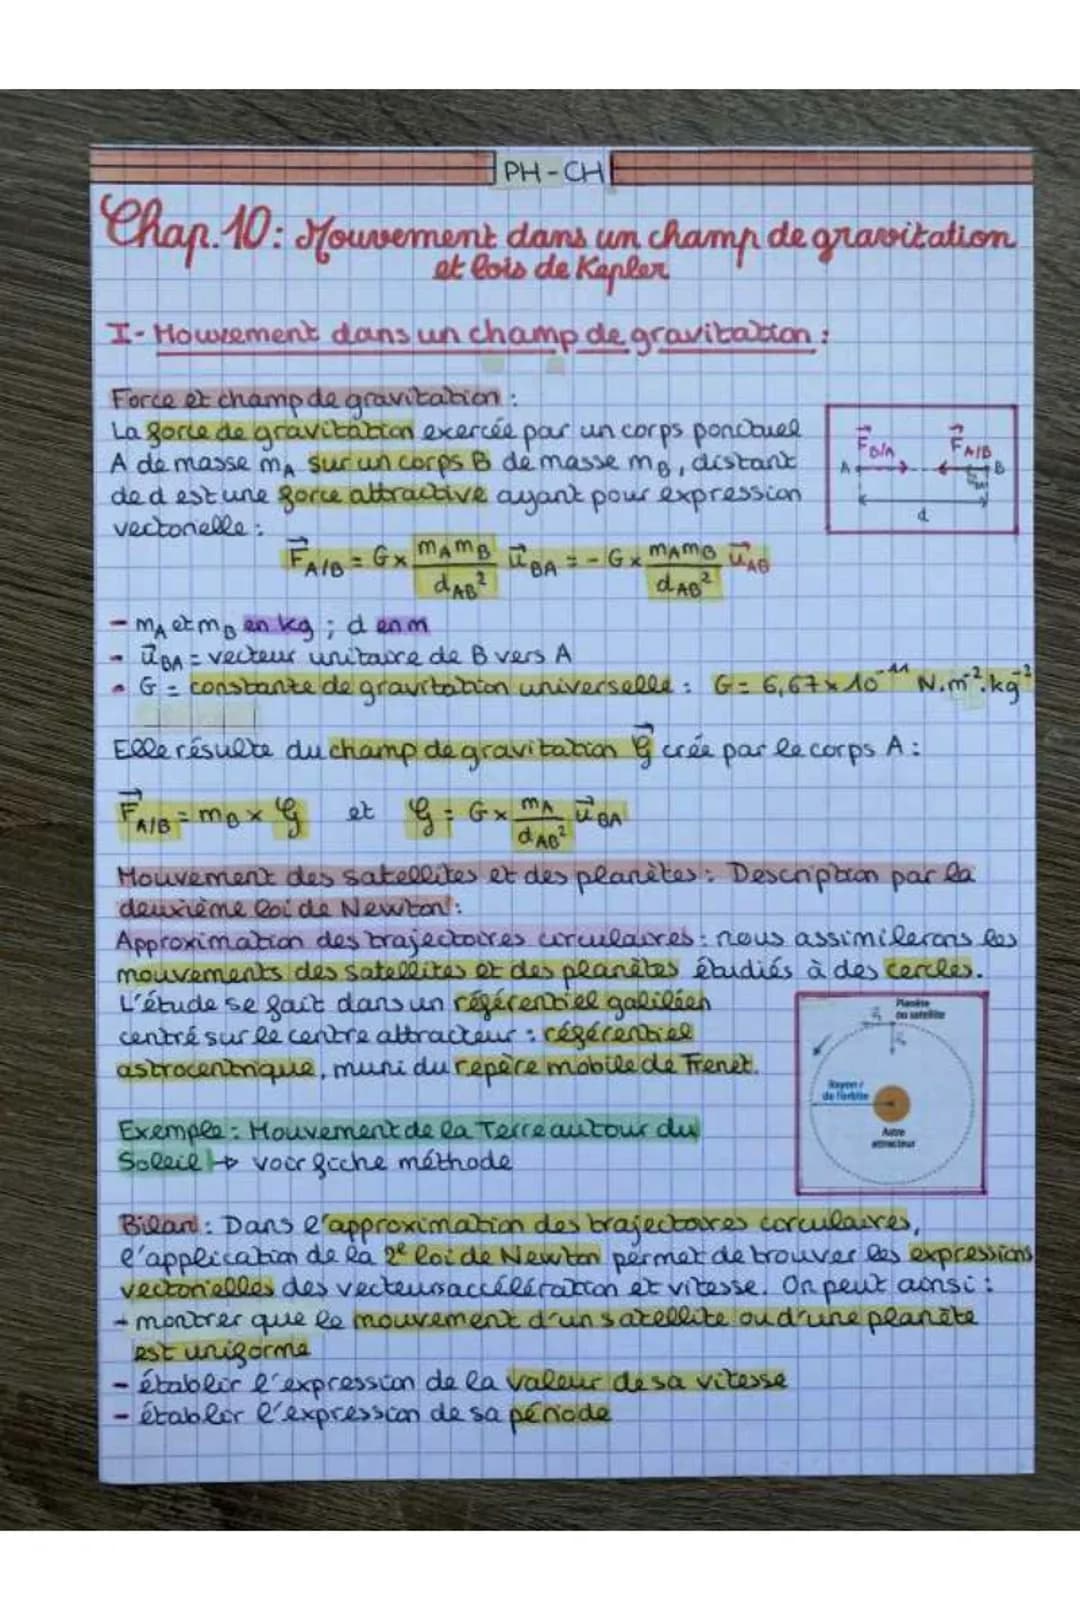 PH-CH
Chap.10: Mouvement dans un champ de gravitation
et lois de Kepler
I- Mouvement dans un champ de gravitation :
Force et champ de gravitation :
La force de gravitation exercée par un corps ponctuel
A de masse mA sur un corps B de masse mB, distant
de d est une force attractive ayant pour expression
vectorielle :
F⃗B/A F⃗A/B
A B
d
F⃗A/B = G × mAmB / dAB² u⃗BA = - G × mAmB / dAB² u⃗AB
- mA et mB en kg ; d en m
- u⃗BA = vecteur unitaire de B vers A
- G = constante de gravitation universelle : G = 6,67 × 10⁻¹¹ N.m⁻².kg⁻²
Elle résulte du champ de gravitation G⃗ crée par le corps A :
F⃗A/B = mB × G et G = G × mA / dAB² u⃗BA
Mouvement des satellites et des planètes : Description par la
deuxième loi de Newton :
Approximation des trajectoires circulaires : nous assimilerons les
mouvements des satellites et des planètes étudiés à des cercles.
L'étude se fait dans un référentiel galiléen
centré sur le centre attracteur : référentiel
astrocentrique, muni du repère mobile de Frenet.
Planète
ou satellite
Rayon r
de l'orbite
Astre
attracteur
Exemple : Mouvement de la Terre autour du
Soleil → voir fiche méthode
Bilan : Dans l'approximation des trajectoires circulaires,
l'application de la 2e loi de Newton permet de trouver les expressions
vectorielles des vecteurs accélération et vitesse. On peut ainsi :
- montrer que le mouvement d'un satellite ou d'une planète
est uniforme
- établir l'expression de la valeur de sa vitesse
- établir l'expression de sa période